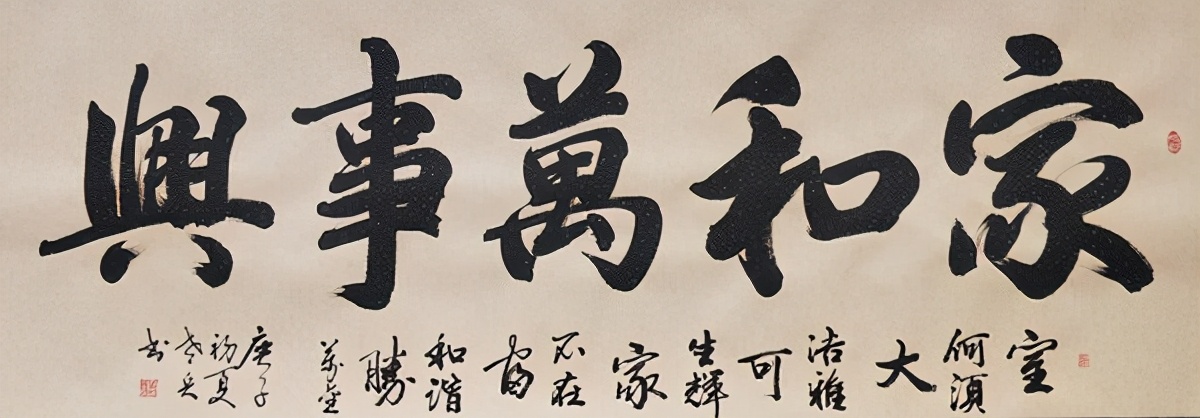 家和萬事興
室
何須
大
洁雅
可
生輝
家
不在
富
和谐
勝
萬金
庚子
初夏
老兵
书